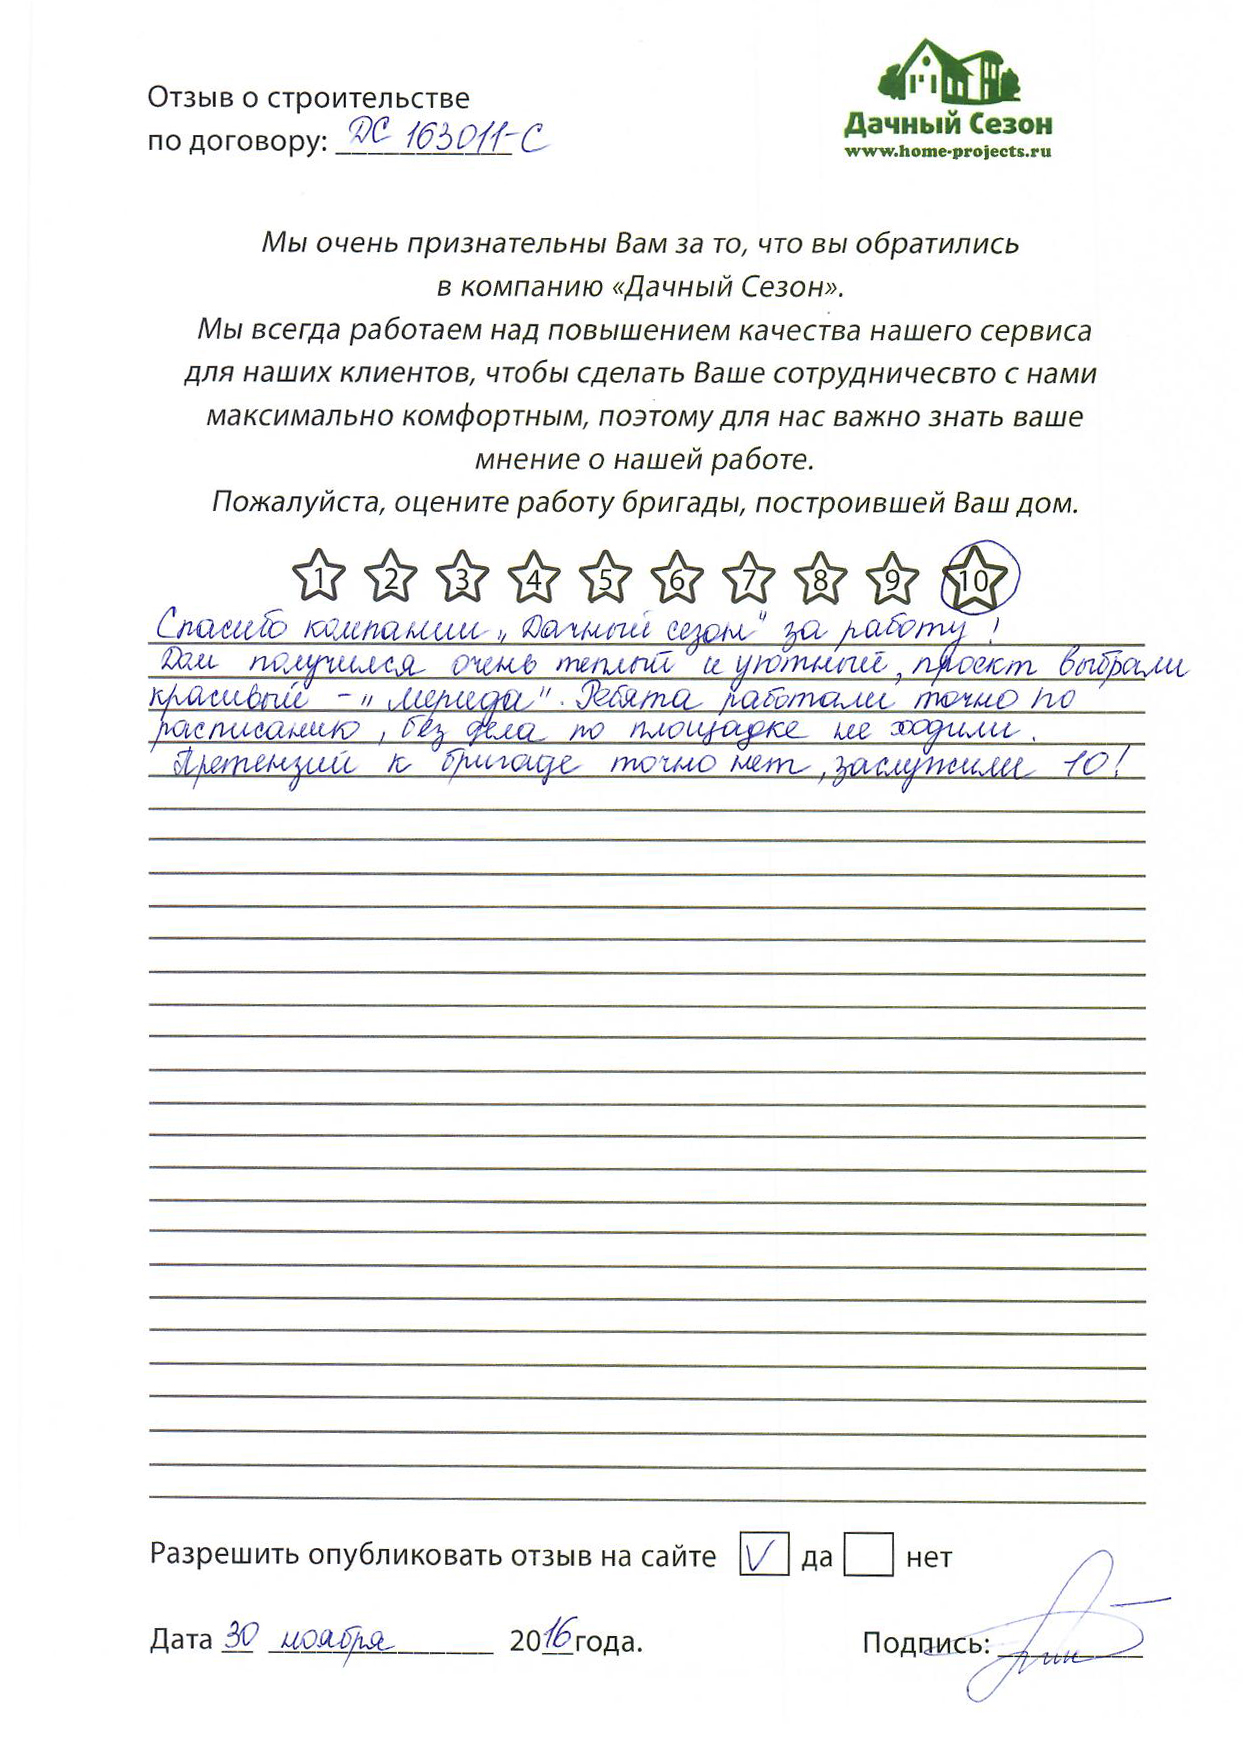 Отзыв о строительстве
по договору: ДС 163011-С
Дачный Сезон
www.home-projects.ru
Мы очень признательны Вам за то, что вы обратились
в компанию «Дачный Сезон».
Мы всегда работаем над повышением качества нашего сервиса
для наших клиентов, чтобы сделать Ваше сотрудничесвто с нами
максимально комфортным, поэтому для нас важно знать ваше
мнение о нашей работе.
Пожалуйста, оцените работу бригады, построившей Ваш дом.
1 2 3 4 5 6 7 8 9 10
Спасибо компании „Дачный сезон" за работу!
Дом получился очень теплый и уютный, проект выбрали
красивый - „Мерида". Ребята работали точно по
расписанию, без дела по площадке не ходили.
Претензий к бригаде точно нет, заслужили 10!
Разрешить опубликовать отзыв на сайте V да нет
Дата 30 ноября 2016 года. Подпись: